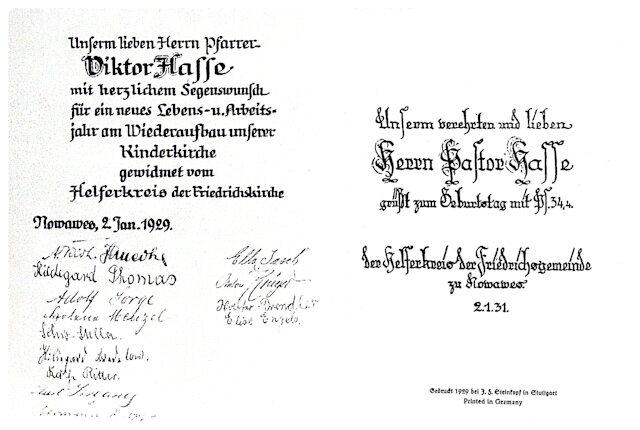 Unserm lieben Herrn Pfarrer
Viktor Hasse
mit herzlichem Segenswunsch
für ein neues Lebens- u. Arbeits-
jahr am Wiederaufbau unserer
Kinderkirche
gewidmet vom
Helferkreis der Friedrichskirche
Nowawes, 2. Jan. 1929.
Hildegard Thomas
Adolf Sorge
Menzel
Hildegard
Ritter
Ella
Elise Engels.
Unserm verehrten und lieben
Herrn Pastor Hasse
grüßt zum Geburtstag mit Ps. 34,4.
der Helferkreis der Friedrichsgemeinde
zu Nowawes
2.1.31.
Gedruckt 1929 bei J. F. Steinkopf in Stuttgart
Printed in Germany